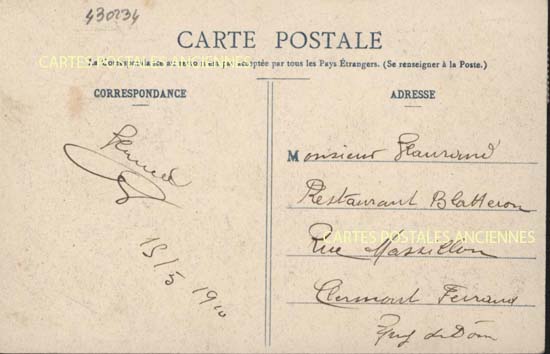 430234
CARTE POSTALE
CARTES POSTALES ANCIENNES
La Correspondance au recto n'est pas acceptée par tous les Pays Étrangers. (Se renseigner à la Poste.)
CORRESPONDANCE
15/5 1910
ADRESSE
Monsieur Flaurand
Restaurant Blatteron
Rue Massillon
CARTES POSTALES ANCIENNES
Clermont Ferrand
Puy de Dôm